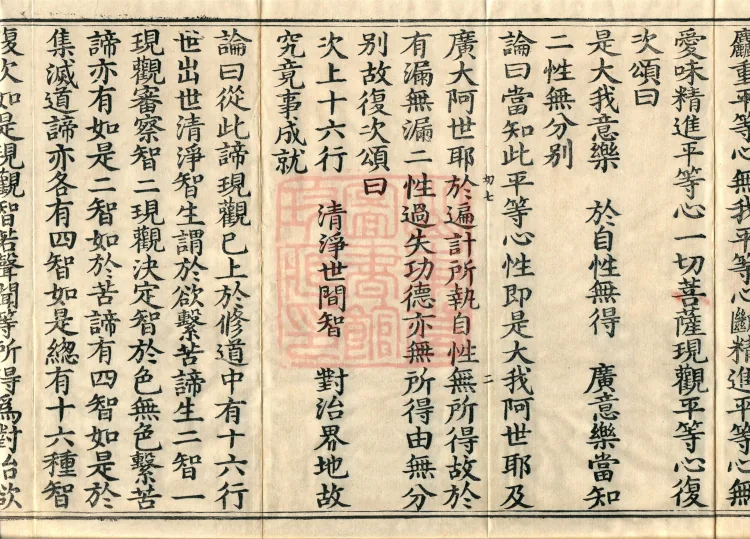 麤重平等心無我平等心斷精進平等心無
愛味精進平等心一切菩薩現觀平等心復
次頌曰
是大我意樂　於自性無得　廣意樂當知
二性無分別
論曰當知此平等心性即是大我阿世耶及
切七　二
廣大阿世耶於遍計所執自性無所得故於
有漏無漏二性過失功德亦無所得由無分
別故復次頌曰
次上十六行　清淨世間智　對治界地故
究竟事成就
論曰從此諦現觀已上於修道中有十六行
世出世清淨智生謂於欲繫苦諦生二智一
現觀審察智二現觀決定智於色無色繫苦
諦亦有如是二智如於苦諦有四智如是於
集滅道諦亦各有四智如是總有十六種智
復次如是現觀智若聲聞等所得為對治欲